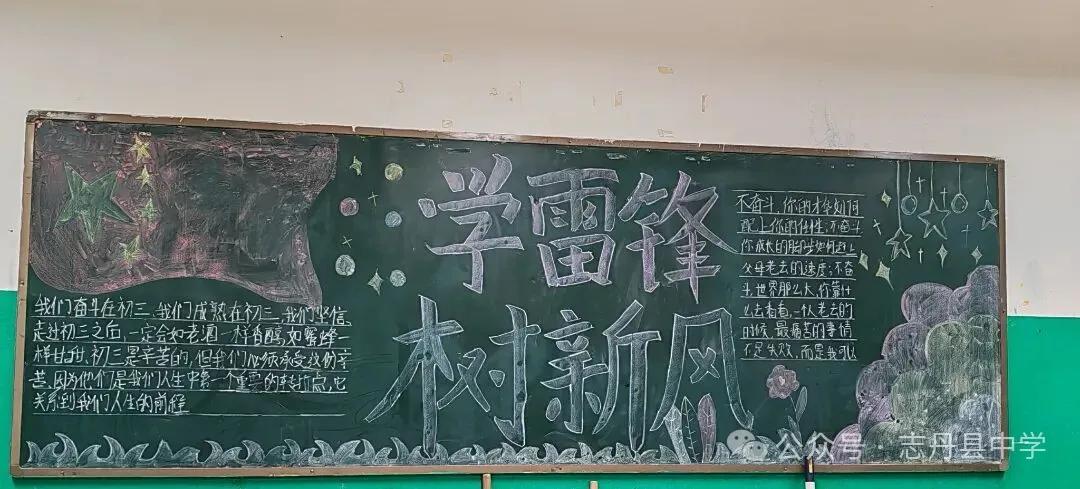 学雷锋
树新风
我们奋斗在初三,我们成熟在初三,我们坚信,
走过初三之后,一定会如老酒一样香醇,如蜜蜂一
样甘甜,初三是辛苦的,但我们必须承受这份辛
苦,因为他们是我们人生中第一个重要的转折点,它
关系到我们人生的前程
不奋斗,你的才华如何
配上你的任性,不奋斗
你成长的脚步如何赶上
父母老去的速度;不奋
斗,世界那么大,你靠什
么去看看,一个人老去的
时候,最痛苦的事情
不是失败,而是我可以
公众号·志丹县中学